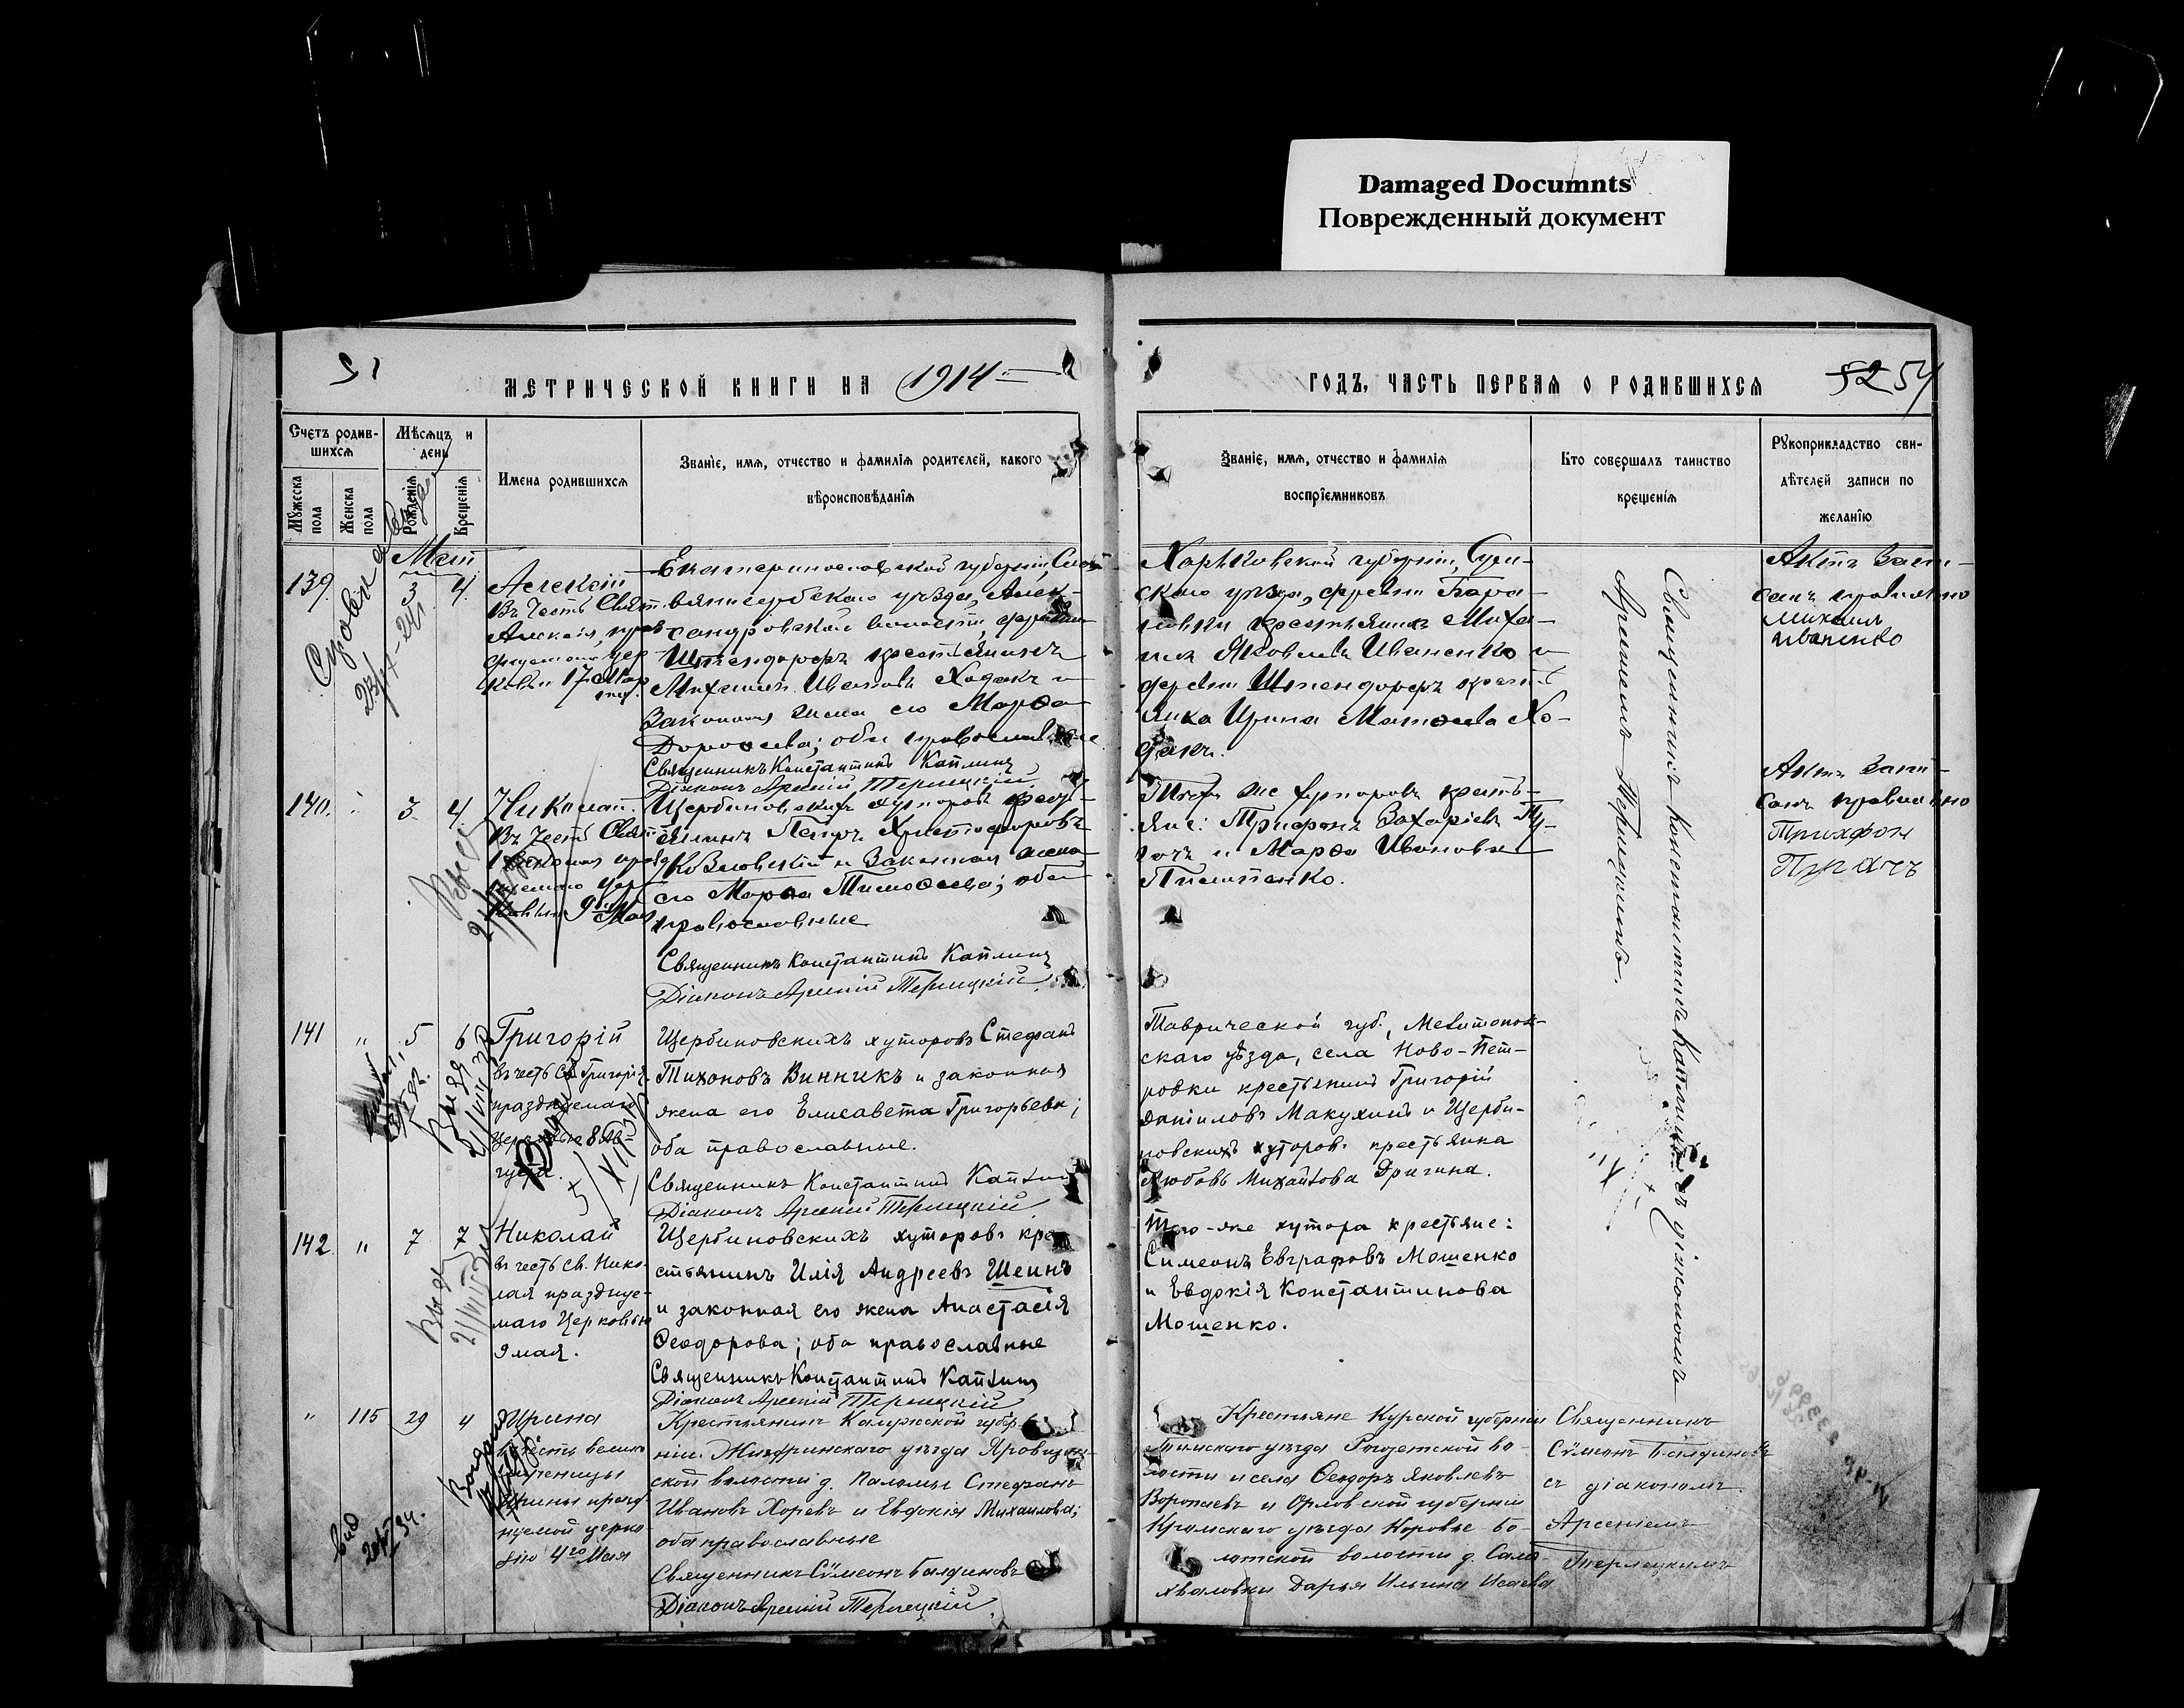 Damaged Documnts
Поврежденный документ
51
МЕТРИЧЕСКОЙ КНИГИ НА 1914
ГОДЪ, ЧАСТЬ ПЕРВАЯ О РОДИВШИХСЯ
52 54
Счетъ родив-
шихся
Мѣсяцъ и
день
Мужеска
пола
Женска
пола
Рожденія
Крещенія
Имена родившихся
Званіе, имя, отчество и фамилія родителей, какого
вѣроисповѣданія
Званіе, имя, отчество и фамилія
воспріемниковъ
Кто совершалъ таинство
крещенія
Рукоприкладство сви-
дѣтелей записи по
желанію
Май
139. 3 4.
Алексѣй
въ честь Свят.
Алексія, праз
днуемаго цер
ковью 17 Мар
та
Екатеринославской губерніи, Слав
яносербскаго уѣзда, Алек-
сандровской волости, деревни
Штендорфъ крестьянинъ
Михаилъ Ивановъ Ходакъ и
законная жена его Марѳа
Дороѳеева; оба православные
Священникъ Константинъ Каплинъ
Діаконъ Арсеній Терлецкій
Харьковской губерніи, Сум-
скаго уѣзда, деревни Бара-
новки крестьянинъ Миха-
илъ Яковлевъ Иваненко и
деревни Штендорфъ крест
янка Ирина Матѳеева Хо-
дакъ.
Священникъ Константинъ Каплинъ съ діакономъ
Арсеніемъ Терлецкимъ.
Актъ запи-
санъ правильно
Михаил
Иваненко
140. " 3 4.
Николай.
Въ честь Свят
Николая праз
днуемаго цер
ковью 9 Мая
Щербиновскихъ хуторовъ крест-
янинъ Петръ Христофоровъ
Козловскій и законная жена
его Марѳа Тимоѳеева; оба
православные
Священникъ Константинъ Каплинъ
Діаконъ Арсеній Терлецкій
Тѣхъ же хуторовъ кресть-
яне: Трифонъ Захаріевъ
и Марѳа Иванова
Пилипенко.
Актъ запи-
санъ правильно
Трихфон
141 " 5 6
Григорій
въ честь Св. Григорія
празднуемаго
Церковью 8 Ав-
густа.
Щербиновскихъ хуторовъ Стефанъ
Тихоновъ Винникъ и законная
жена его Елисавета Григорьева;
оба православные.
Священникъ Константинъ Каплинъ
Діаконъ Арсеній Терлецкій
Таврической губ., Мелитополь-
скаго уѣзда, села Ново-Пет-
ровки крестьянинъ Григорій
Даніиловъ Макухинъ и Щерби-
новскихъ хуторовъ крестьянка
Любовь Михайлова Дригина.
142 " 7 7
Николай
въ честь Св. Нико-
лая празднуе-
маго Церковью
9 мая.
Щербиновскихъ хуторовъ кре-
стьянинъ Илія Андреевъ Шеинъ
и законная его жена Анастасія
Ѳеодорова; оба православные
Священникъ Константинъ Каплинъ
Діаконъ Арсеній Терлецкій
Того-же хутора крестьяне:
Симеонъ Евграфовъ Мошенко
и Евдокія Константинова
Мошенко.
" 115 29 4
Ирина
въ честь велико
мученицы
Ирины празд-
нуемой церко-
вію 4го Мая
Крестьянинъ Калужской губер-
ніи Жиздринскаго уѣзда
ской волости д. Паломы Стефанъ
Ивановъ Хоревъ и Евдокія Михаилова;
оба православные
Священникъ Сѵмеонъ Балдиновъ
Діаконъ Арсеній Терлецкій.
Крестьяне Курской губерніи
Тимскаго уѣзда во-
лости и села Ѳеодоръ Яковлевъ
Воропаевъ и Орловской губерніи
Кромскаго уѣзда Коровье Бо-
лотской волости д. Само-
хваловки Дарья Ильина Исаева
Священникъ
Сѵмеонъ Балдиновъ
съ діакономъ
Арсеніемъ
Терлецкимъ